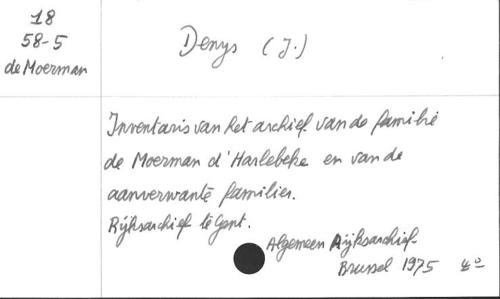 18
58-5
de Moerman
Denys (J.)
Inventaris van het archief van de familie
de Moerman d'Harlebeke en van de
aanverwante families.
Rijksarchief te Gent.
Algemeen Rijksarchief
Brussel 1975 4°